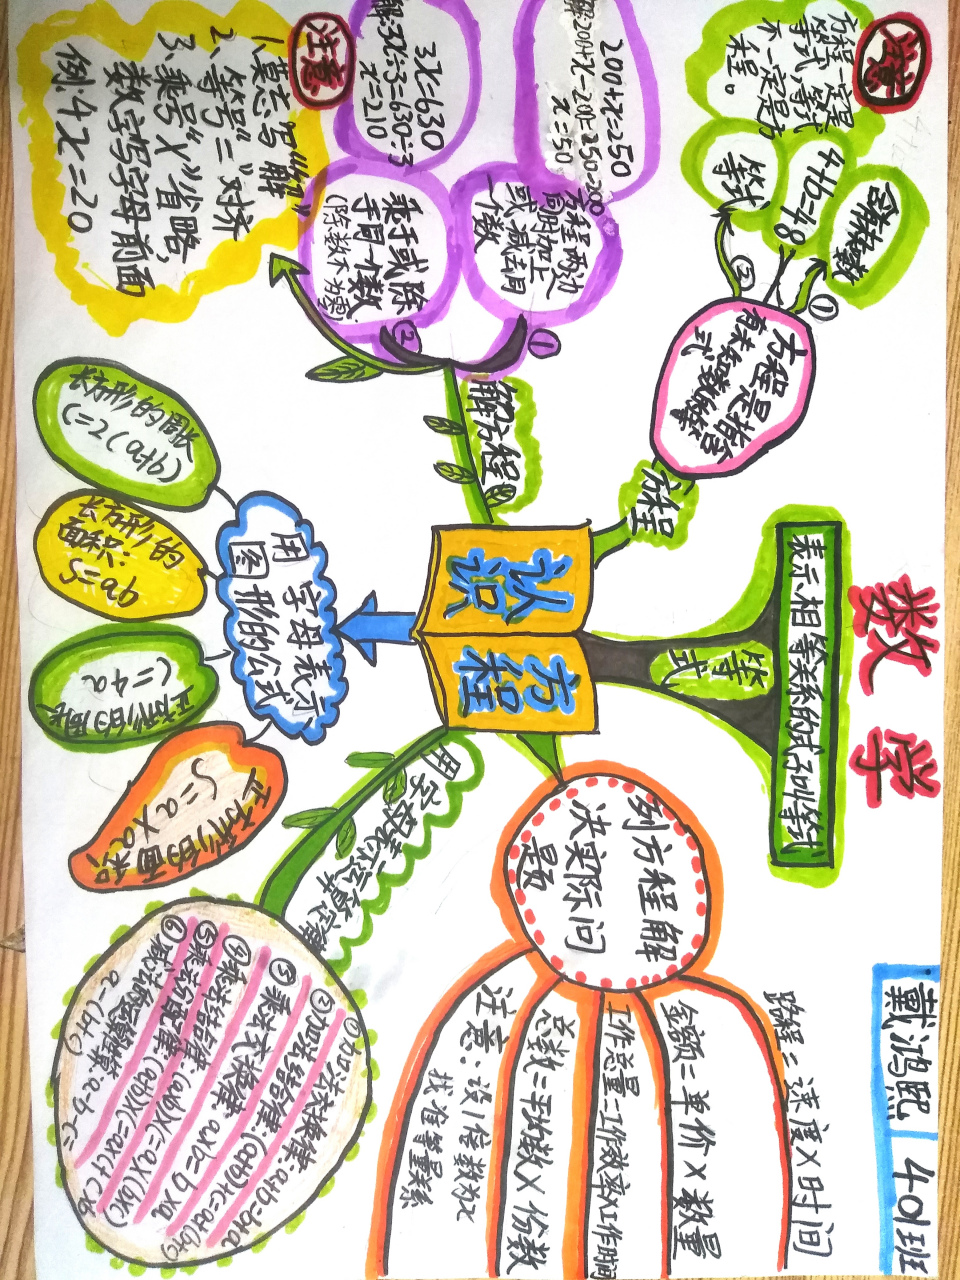 数学
戴鸿熙 401班
认识
方程
等式
表示相等关系的式子叫等式
方程
方程是指含
有未知数的等
式
①
含未知数
②
等式
4+b=48
注意
方程一定是
等式,等式
不一定是方
程。
解方程
①
方程两边
同时加上
或减去同
一个数
200+x=250
解:200+x-200=250-200
x=50
②
乘于或除
于同一个数
(除数不为零)
3x=630
解:3x÷3=630÷3
x=210
注意
1、莫忘写“解”
2、等号“=”对齐
3、乘号“x”省略,
数字写字母前面
例:4x=20
用字母表示
图形的公式
长方形的周长
C=2(a+b)
长方形的
面积:
S=ab
正方形的周长
C=4a
正方形的面积
S=a×a
用字母表示运算定律
①加法交换律:a+b=b+a
②加法结合律:(a+b)+c=a+(b+c)
③乘法交换律:a×b=b×a
④乘法结合律:(a×b)×c=a×(b×c)
⑤乘法分配律:(a+b)×c=a×c+c×b
⑥减法的运算:a-b-c=
a-(b+c)
列方程解
决实际问
题
路程=速度×时间
金额=单价×数量
工作总量=工作效率×工作时间
总数=平均数×份数
注意:设1倍数为x
找准等量关系